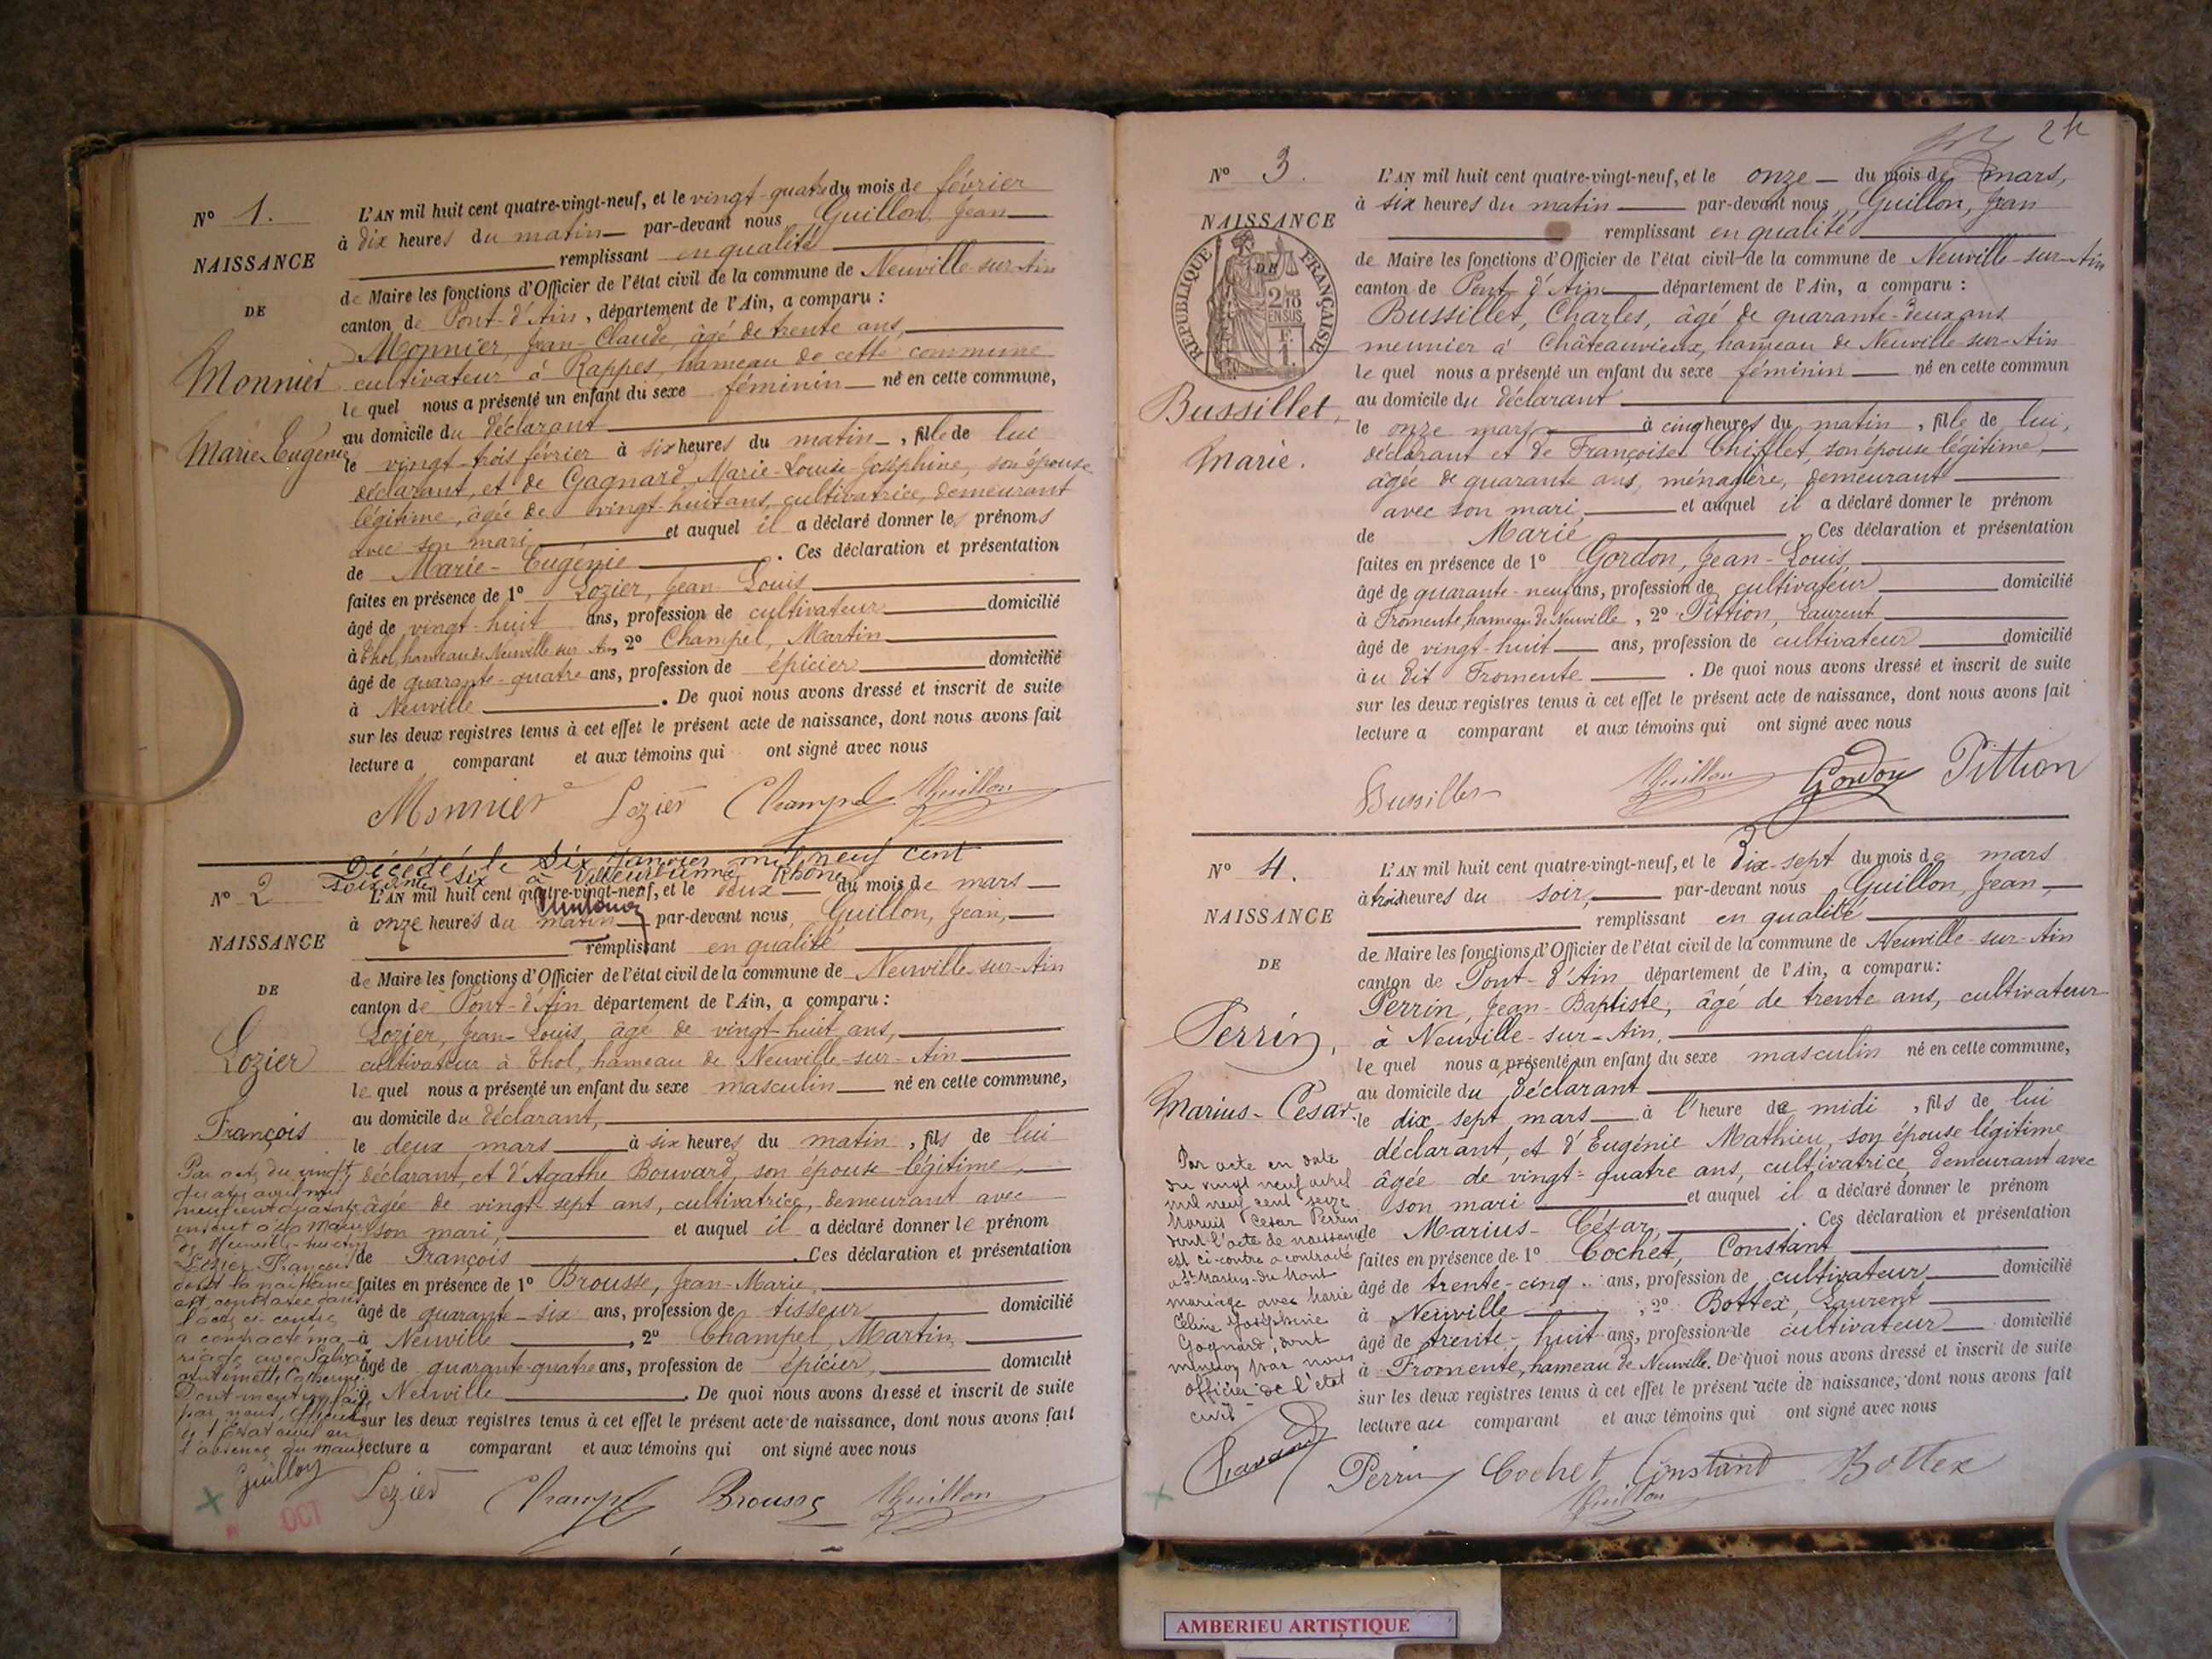 N° 1.
NAISSANCE
DE
Monnier
Marie-Eugénie
L'AN mil huit cent quatre-vingt-neuf, et le vingt-quatre du mois de février
à dix heures du matin par-devant nous Guillon, Jean
remplissant en qualité
de Maire les fonctions d'Officier de l'état civil de la commune de Neuville-sur-Ain
canton de Pont-d'Ain, département de l'Ain, a comparu :
Monnier, Jean-Claude, âgé de trente ans,
cultivateur à Rappes, hameau de cette commune
le quel nous a présenté un enfant du sexe féminin né en cette commune,
au domicile du déclarant
le vingt-trois février à six heures du matin, fille de lui
déclarant, et de Gagnard, Marie-Louise-Joséphine, son épouse
légitime, âgée de vingt-huit ans, cultivatrice, demeurant
avec son mari, et auquel il a déclaré donner les prénoms
de Marie-Eugénie. Ces déclaration et présentation
faites en présence de 1° Lozier, Jean-Louis
âgé de vingt-huit ans, profession de cultivateur domicilié
à Thol, hameau de Neuville sur Ain, 2° Champel, Martin
âgé de quarante-quatre ans, profession de épicier domicilié
à Neuville. De quoi nous avons dressé et inscrit de suite
sur les deux registres tenus à cet effet le présent acte de naissance, dont nous avons fait
lecture a comparant et aux témoins qui ont signé avec nous
Monnier Lozier Champel Guillon
Décédé le six Janvier mil neuf cent
soixante six à Villeurbanne Rhône
N° 2
NAISSANCE
DE
Lozier
François
L'AN mil huit cent quatre-vingt-neuf, et le deux du mois de mars
à onze heures du matin par-devant nous Guillon, Jean,
remplissant en qualité
de Maire les fonctions d'Officier de l'état civil de la commune de Neuville-sur-Ain
canton de Pont-d'Ain département de l'Ain, a comparu :
Lozier, Jean-Louis, âgé de vingt-huit ans,
cultivateur à Thol, hameau de Neuville-sur-Ain
le quel nous a présenté un enfant du sexe masculin né en cette commune,
au domicile du déclarant,
le deux mars à six heures du matin, fils de lui
déclarant, et d'Agathe Bouvard, son épouse légitime,
âgée de vingt sept ans, cultivatrice, demeurant avec
son mari, et auquel il a déclaré donner le prénom
de François. Ces déclaration et présentation
faites en présence de 1° Brousse, Jean-Marie,
âgé de quarante-six ans, profession de tisseur domicilié
à Neuville, 2° Champel, Martin,
âgé de quarante-quatre ans, profession de épicier, domicilié
à Neuville. De quoi nous avons dressé et inscrit de suite
sur les deux registres tenus à cet effet le présent acte de naissance, dont nous avons fait
lecture a comparant et aux témoins qui ont signé avec nous
Par acte du vingt
quatre
neuf cent quatorze
inscrit à la Mairie
de Neuville-sur-Ain
Lozier François
dont la naissance
est constatée dans
l'acte ci-contre
a contracté ma-
riage avec
Dont mention faite
par nous, officier
de l'Etat civil en
l'absence du maire
Guillon
Lozier Champel Brousse Guillon
OCT
24
N° 3.
NAISSANCE
DE
RÉPUBLIQUE FRANÇAISE
2/10 EN SUS
Bussillet,
Marie.
L'AN mil huit cent quatre-vingt-neuf, et le onze du mois de mars,
à six heures du matin par-devant nous, Guillon, Jean
remplissant en qualité
de Maire les fonctions d'Officier de l'état civil de la commune de Neuville-sur-Ain
canton de Pont-d'Ain département de l'Ain, a comparu :
Bussillet, Charles, âgé de quarante-deux ans
meunier à Châteauvieux, hameau de Neuville-sur-Ain
le quel nous a présenté un enfant du sexe féminin né en cette commun
au domicile du déclarant
le onze mars à cinq heures du matin, fille de lui,
déclarant et de Françoise Chifflet, son épouse légitime,
âgée de quarante ans, ménagère, demeurant
avec son mari, et auquel il a déclaré donner le prénom
de Marie Ces déclaration et présentation
faites en présence de 1° Gordon, Jean-Louis,
âgé de quarante-neuf ans, profession de cultivateur domicilié
à Fromente, hameau de Neuville, 2° Pittion, Laurent
âgé de vingt-huit ans, profession de cultivateur domicilié
à u dit Fromente. De quoi nous avons dressé et inscrit de suite
sur les deux registres tenus à cet effet le présent acte de naissance, dont nous avons fait
lecture a comparant et aux témoins qui ont signé avec nous
Bussillet Guillon Gordon Pittion
N° 4.
NAISSANCE
DE
Perrin,
Marius-César.
L'AN mil huit cent quatre-vingt-neuf, et le dix-sept du mois de mars
à trois heures du soir, par-devant nous Guillon, Jean,
remplissant en qualité
de Maire les fonctions d'Officier de l'état civil de la commune de Neuville-sur-Ain
canton de Pont-d'Ain département de l'Ain, a comparu:
Perrin, Jean-Baptiste, âgé de trente ans, cultivateur
à Neuville-sur-Ain.
le quel nous a présenté un enfant du sexe masculin né en cette commune,
au domicile du déclarant
le dix-sept mars à l'heure de midi, fils de lui
déclarant, et d'Eugénie Mathieu, son épouse légitime
âgée de vingt-quatre ans, cultivatrice, demeurant avec
son mari et auquel il a déclaré donner le prénom
de Marius-César,. Ces déclaration et présentation
faites en présence de 1° Cochet, Constant
âgé de trente-cinq ans, profession de cultivateur domicilié
à Neuville, 2° Bottex, Laurent
âgé de trente-huit ans, profession de cultivateur domicilié
à Fromente, hameau de Neuville. De quoi nous avons dressé et inscrit de suite
sur les deux registres tenus à cet effet le présent acte de naissance, dont nous avons fait
lecture au comparant et aux témoins qui ont signé avec nous
Par acte en date
du vingt neuf avril
mil neuf cent seize
Marius César Perrin
dont l'acte de naissance
est ci-contre a contracté
à St Martin-du-Mont
mariage avec Marie
Céline Joséphine
Gagnard, dont
mention par nous
officier de l'état
civil
Perrin Cochet Constant Bottex
Guillon
AMBERIEU ARTISTIQUE